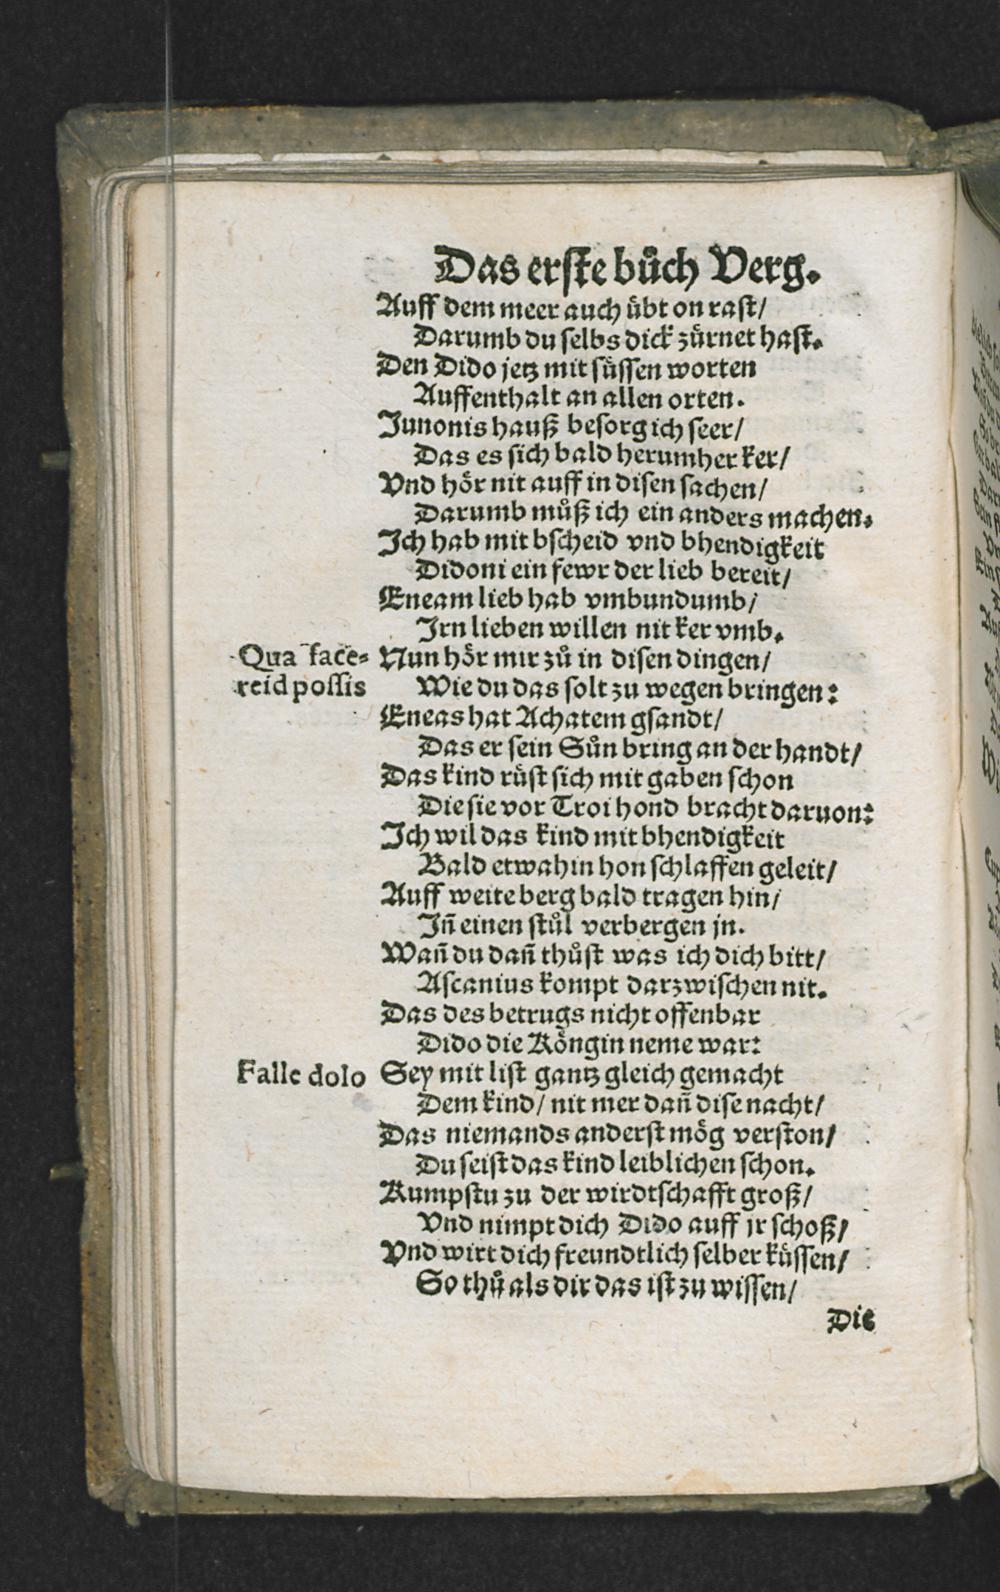 Das erste bůch Verg.
Auff dem meer auch übt on rast/
Darumb du selbs dick zürnet hast.
Den Dido jetz mit süssen worten
Auffenthalt an allen orten.
Junonis hauß besorg ich seer/
Das es sich bald herumher ker/
Vnd hör nit auff in disen sachen/
Darumb můß ich ein anders machen.
Ich hab mit bscheid vnd bhendigkeit
Didoni ein fewr der lieb bereit/
Eneam lieb hab vmbundumb/
Irn lieben willen nit ker vmb.
Qua face-
Nun hör mir zů in disen dingen/
reid possis
Wie du das solt zu wegen bringen:
Eneas hat Achatem gsandt/
Das er sein Sůn bring an der handt/
Das kind rüst sich mit gaben schon
Die sie vor Troi hond bracht daruon:
Ich wil das kind mit bhendigkeit
Bald etwahin hon schlaffen geleit/
Auff weite berg bald tragen hin/
Iñ einen stůl verbergen jn.
Wañ du dañ thůst was ich dich bitt/
Ascanius kompt darzwischen nit.
Das des betrugs nicht offenbar
Dido die Köngin neme war:
Falle dolo
Sey mit list gantz gleich gemacht
Dem kind/ nit mer dañ dise nacht/
Das niemands anderst mög verston/
Du seist das kind leiblichen schon.
Kumpstu zu der wirdtschafft groß/
Vnd nimpt dich Dido auff jr schoß/
Vnd wirt dich freundtlich selber küssen/
So thů als dir das ist zu wissen/
Die